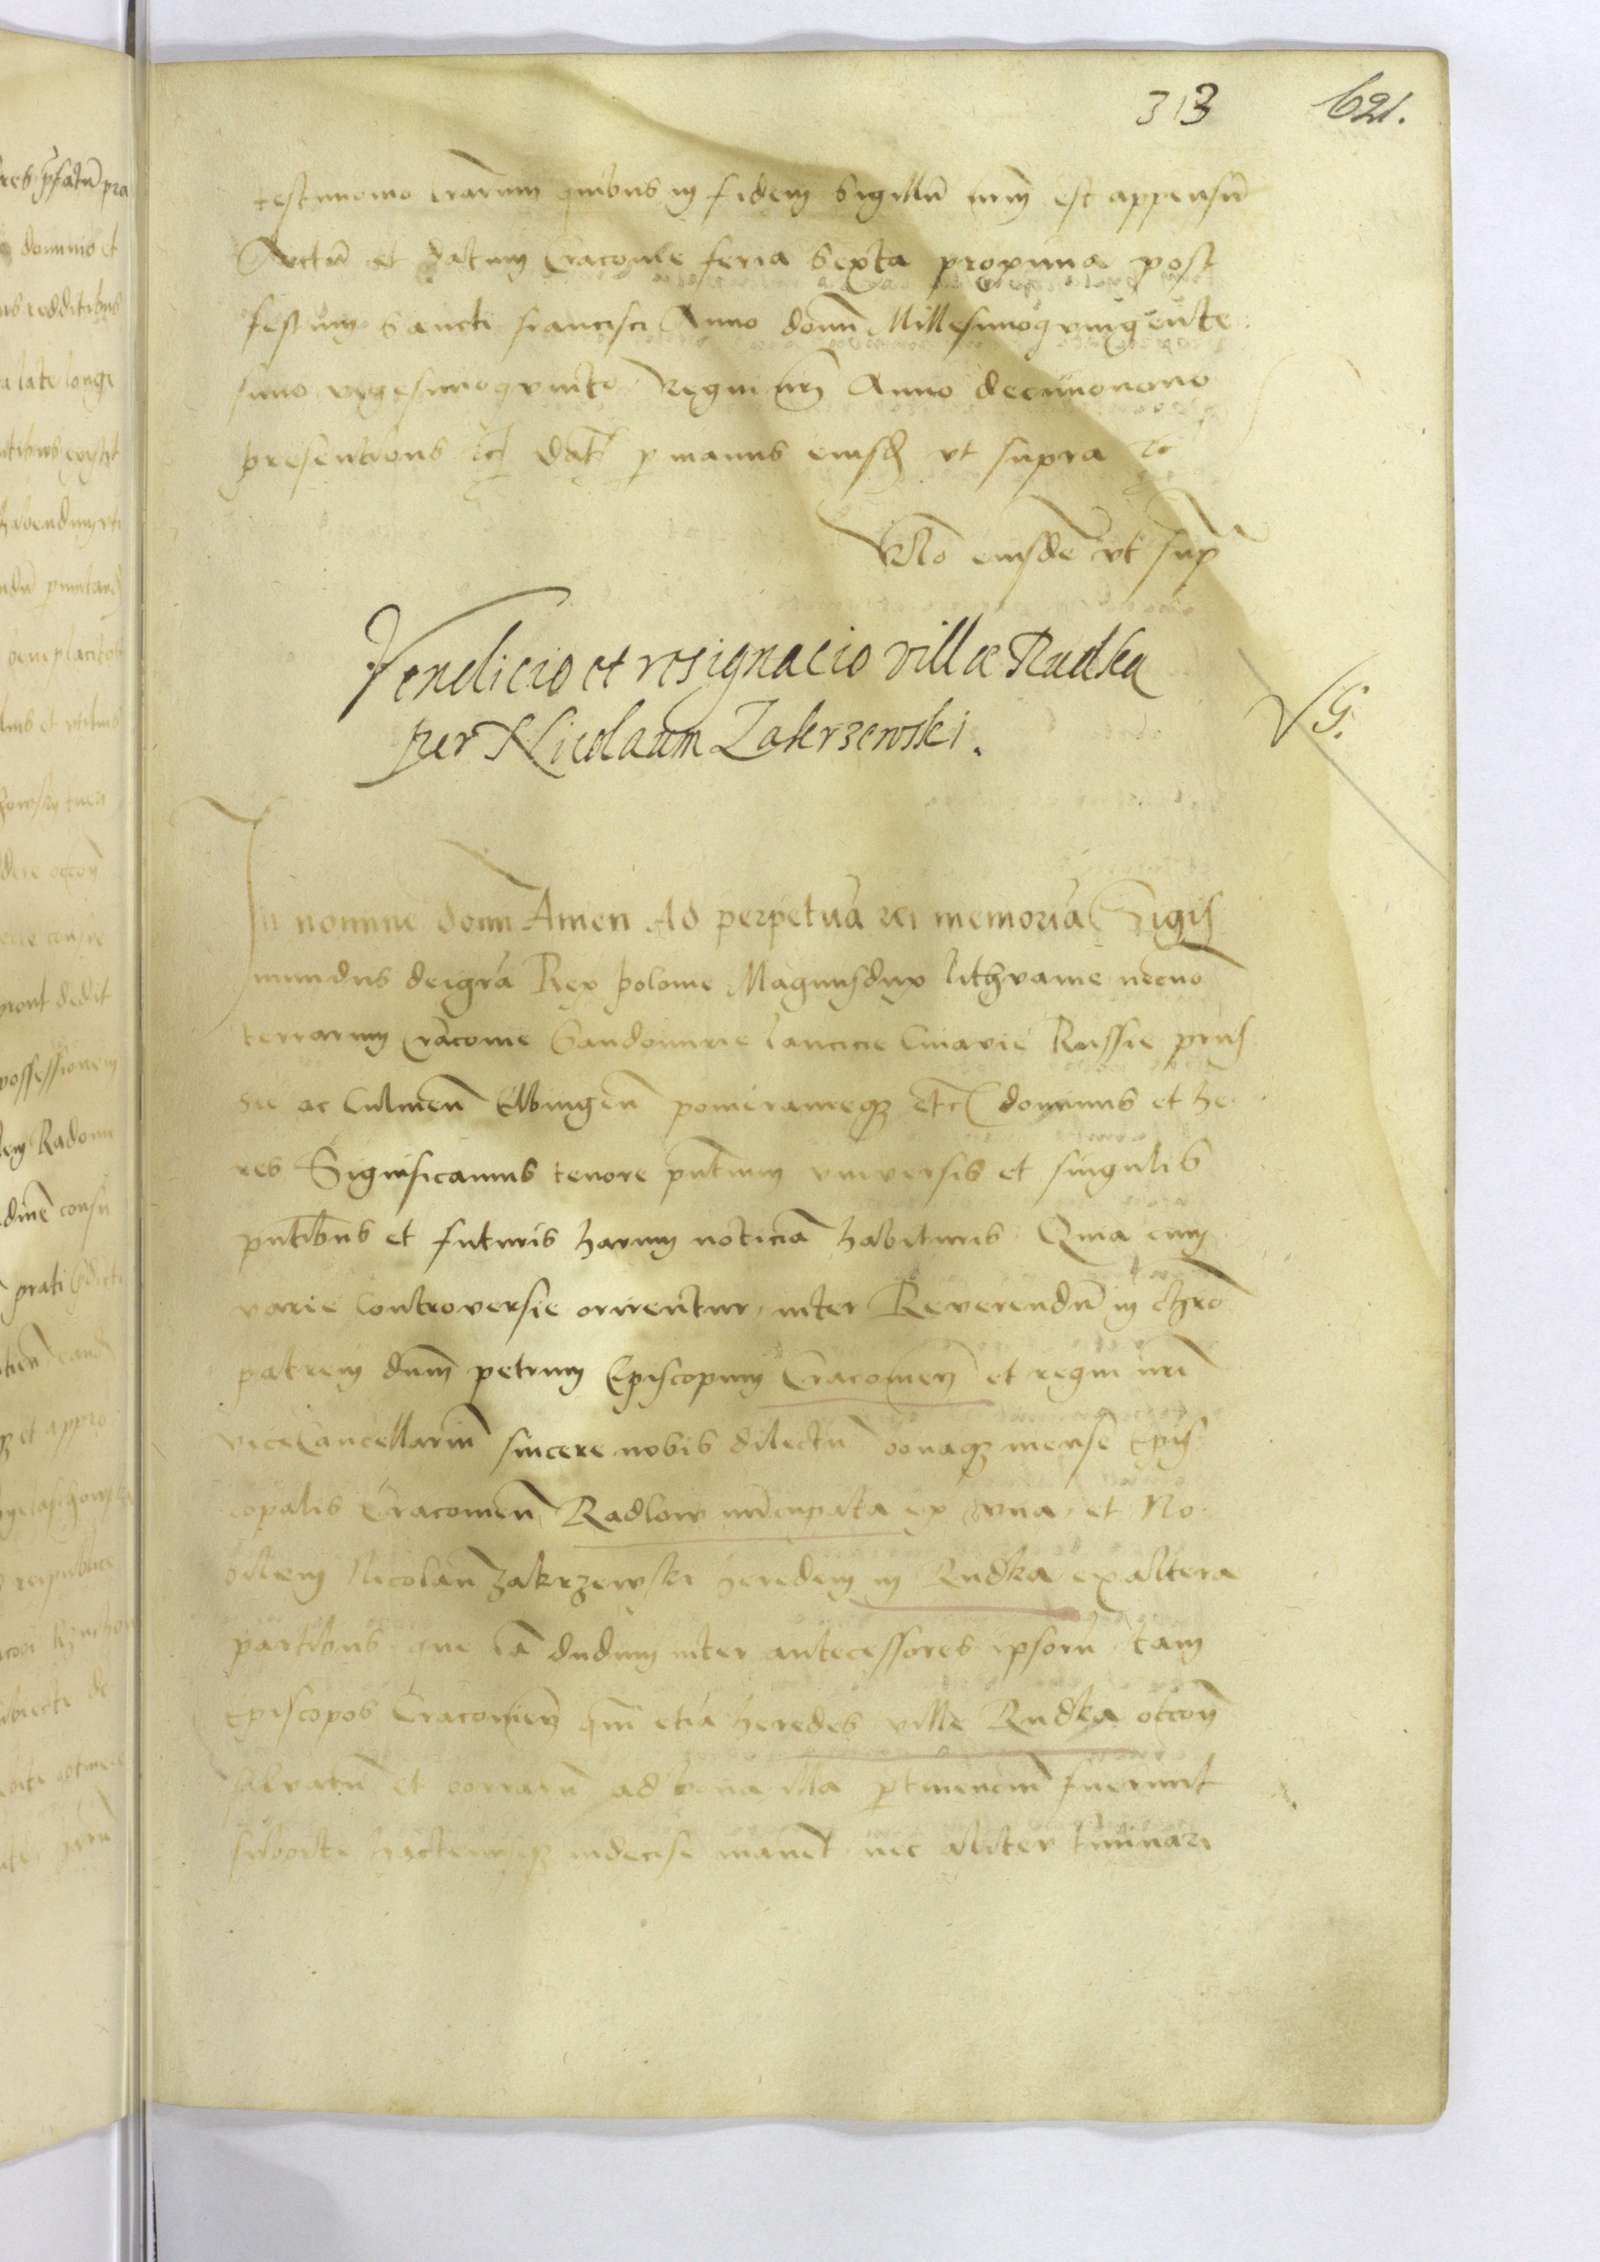 313 621.
testimonio l̃rarum quibus in fidem Sigillũ nr̃m est appensũ
Actũ et datum Cracovie feria Sexta proxima post
festum Sancti francisci Anno domĩ Millesimoqvingẽnte
simo vigesimoqvinto Regni nr̃i Anno decimonono
presentibus etc̃ dat̃ p manus eiusd̃ vt supra etc
R̃lo eiusdẽ vt sup̃
Vendicio et resignacio villæ Rudka
per Nicolaum Zakrzewski.
G.
In nomine domĩ Amen Ad perpetuã rei memoriã Sigis
mundus dei gr̃a Rex polonie Magnusdux lithvanie necnõ
terrarum Cracovie Sandomirie Lancicie Cuiavie Russie prus
sie ac Culmeñ Elbingeñ pomeranieqȝ etc̃ dominus et he
res Significamus tenore pñtium vniversis et singulis
pñtibus et futuris harum noticiã habituris Quia cum
varie Controversie orirentur, inter Reverendũ in chrõ
patrem dñm petrum Episcopum Cracovień et regni nr̃i
viceCancellariũ sincere nobis dilectũ bonaqȝ mense Epis
copalis Cracovień Radlow nũcupata ex vna, et No
bilem Nicolaũ Zakrzewski heredem in Rudka ex altera
partibus, que iã dudum inter antecessores ipsorũ tam
Episcopos Cracovień qm̃ etiã heredes ville Rudka occoñ
silvarũ et borrarũ ad bona illa ptinenciũ fuerunt
suborte hactenusqȝ indecise manẽt nec aliter tminari